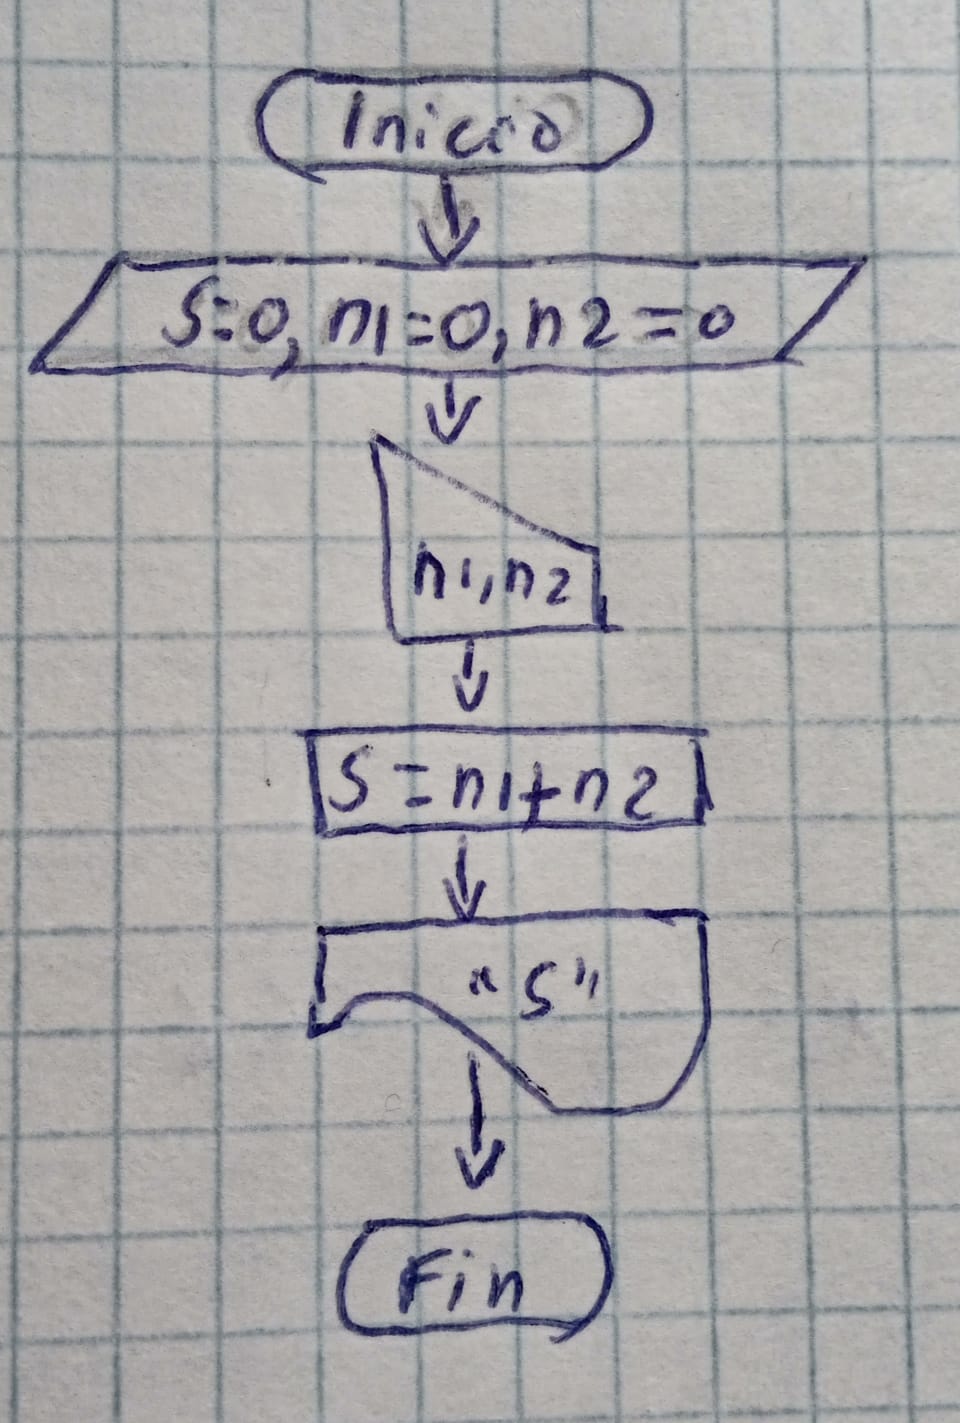 Inicio
S=0, n1=0, n2=0
n1, n2
S=n1+n2
"S"
Fin